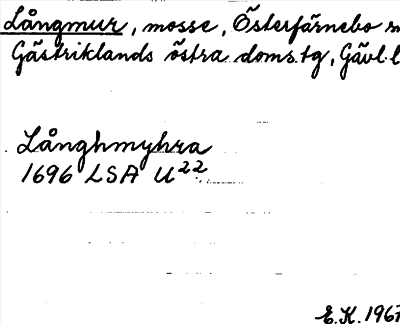 Långmur, mosse, Österfärnebo
Gästriklands östra doms.tg, Gävl.l
Långhmyhra
1696 LSA U22
E.K. 1967